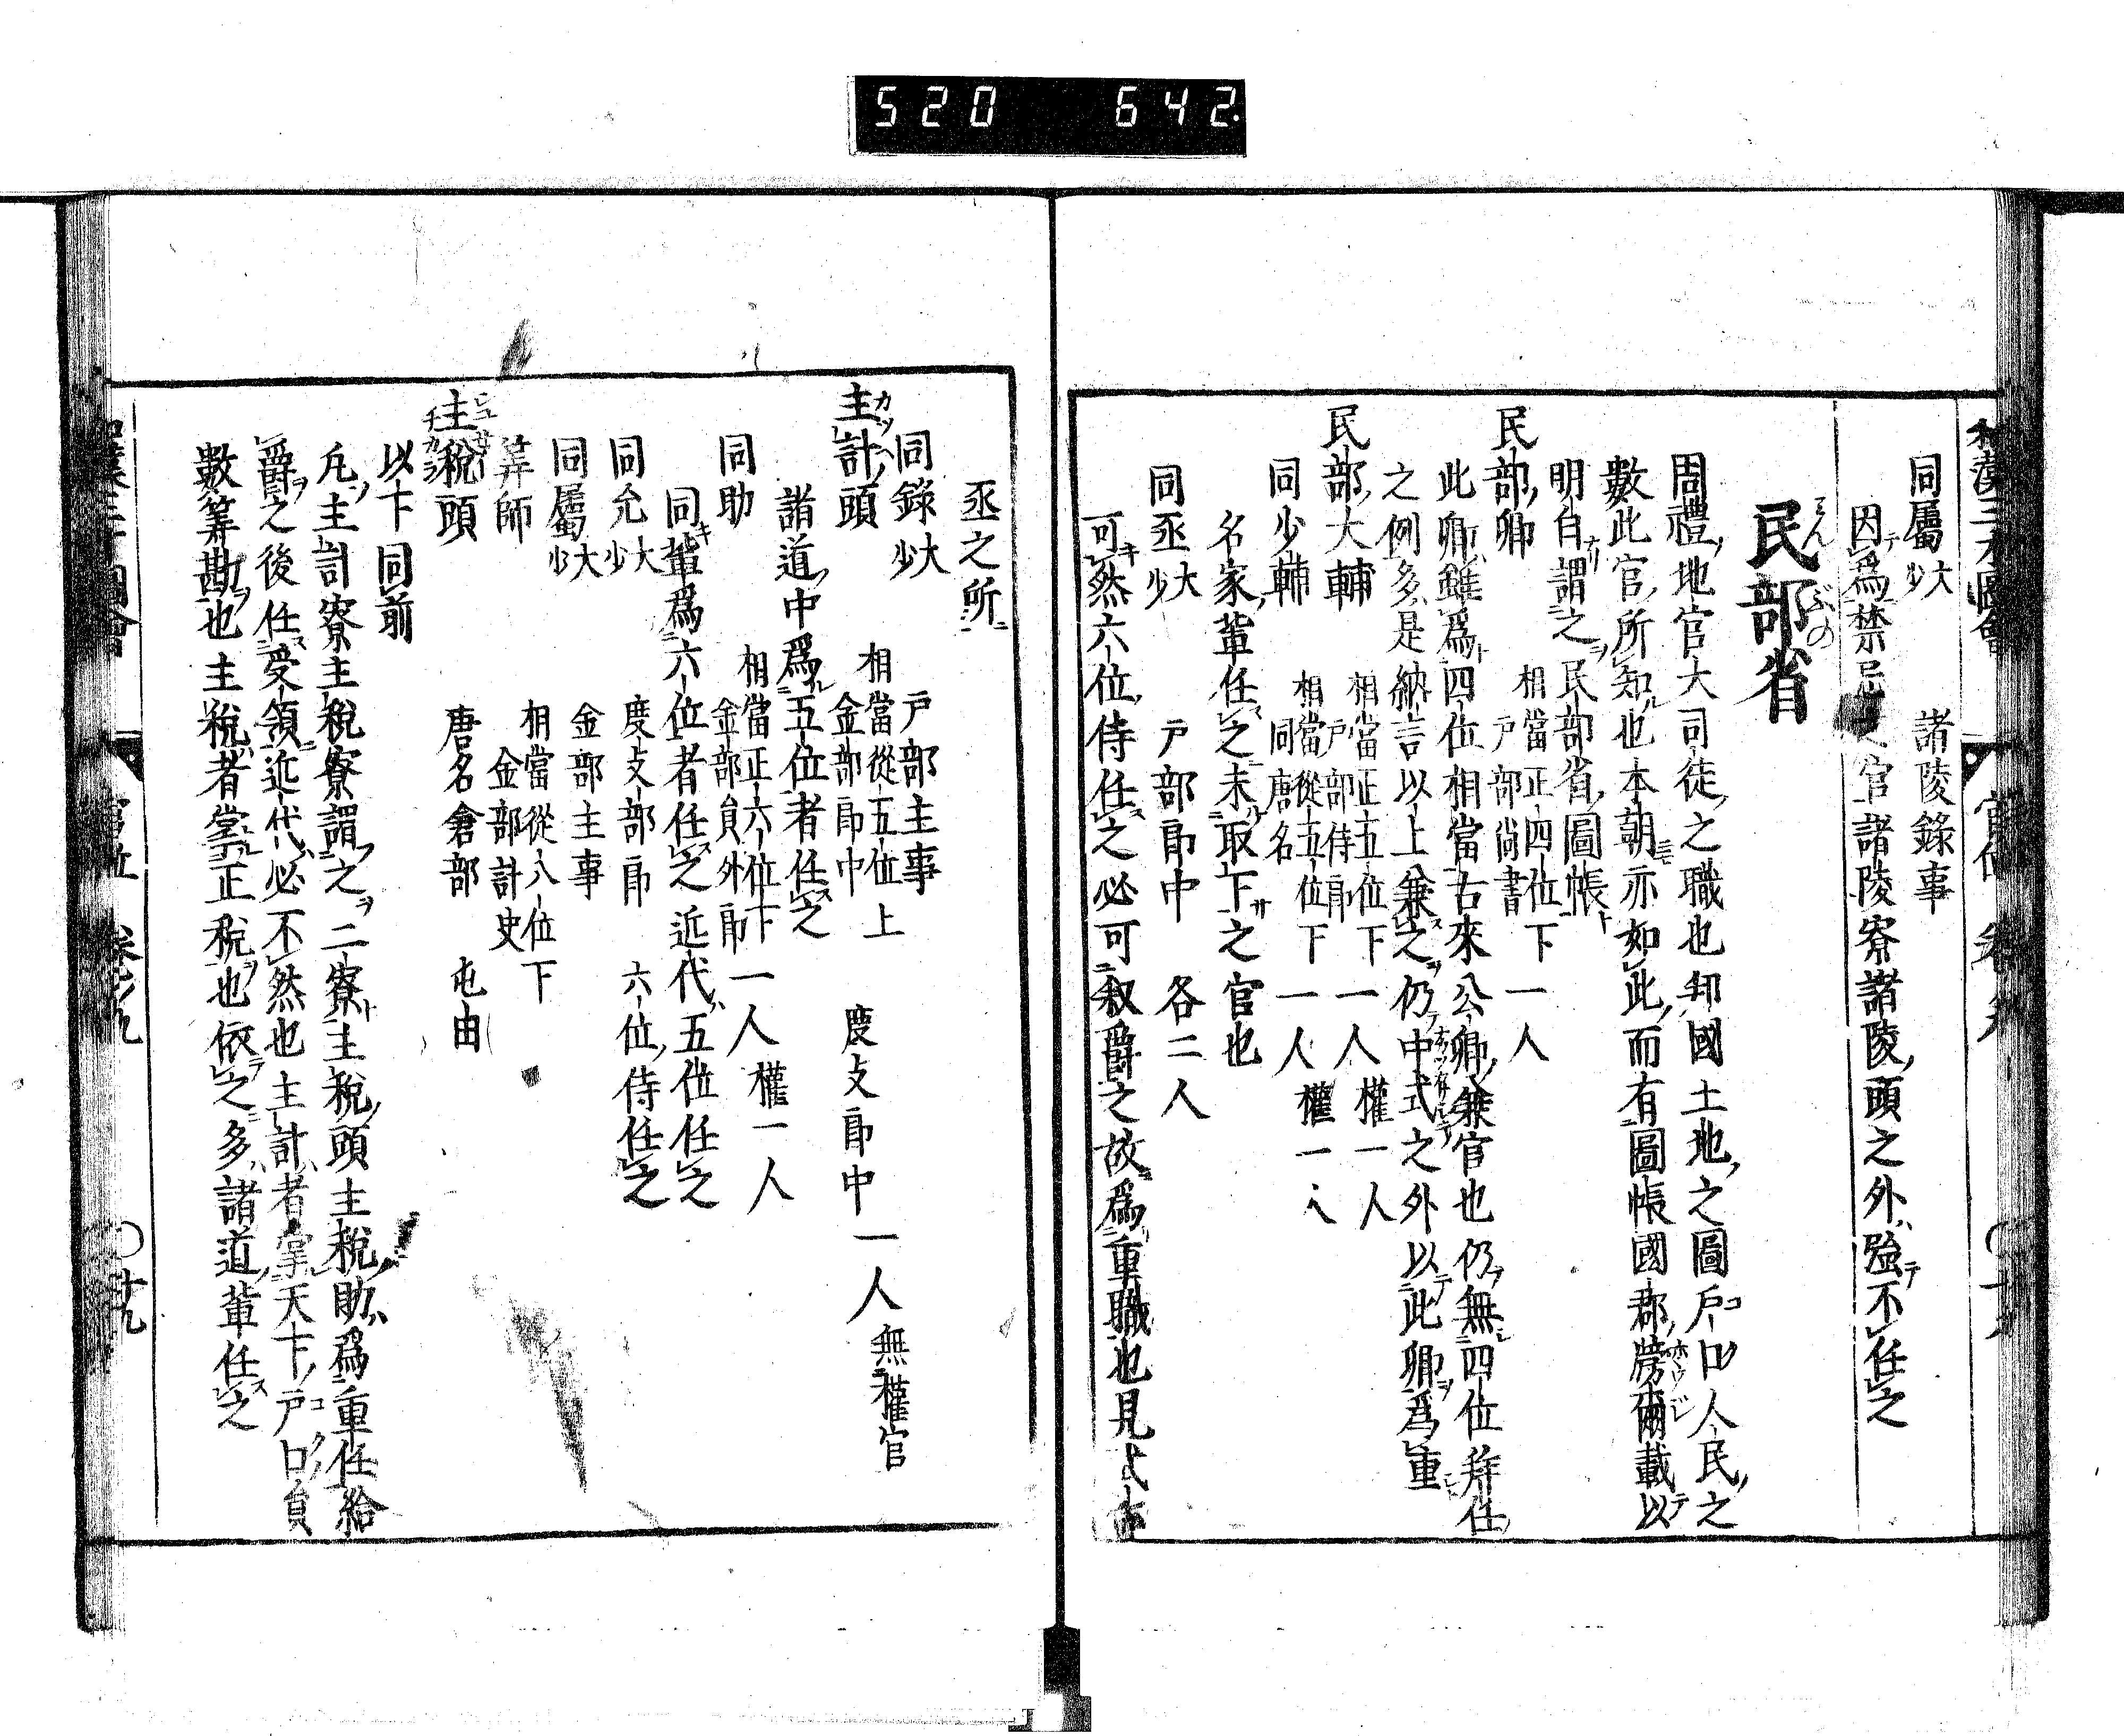 520 642.
同屬 大少 諸陵錄事
因爲禁忌之官諸陵寮諸陵頭之外強不任之
民部省 みんぶの
周禮地官大司徒之職也知國土地之圖戶口人民之
數此官所知也本朝亦如此而有圖帳國郡牓爾載以
明白謂之民部省圖帳
民部卿 相當正四位下 戶部尚書 一人
此卿雖爲四位相當古來公卿兼官也仍無四位拜任
之例多是納言以上兼之仍中式之外以此卿爲重
民部大輔 相當正五位下 戶部侍郎 一人 權一人
同少輔 相當從五位下 同唐名 一人 權一人
名家輩任之未取下之官也
同丞 大少 戶部郎中 各二人
可然六位侍任之必可叙爵之故爲重職也見式
丞之所
同錄 大少 戶部主事
主計頭 相當從五位上 金部郎中 度支郎中 一人 無權官
諸道中爲五位者任之
同助 相當正六位下 金部員外郎 一人 權一人
同輩爲六位者任之近代五位任之
同允 大少 度支部郎 六位侍任之
同屬 大少 金部主事
筭師 相當從八位下 金部計史
主稅頭 唐名倉部 屯田
以下同前
凡主計寮主稅寮謂之二寮主稅頭主稅助爲重任給
爵之後任受領近代必不然也主計者掌天下戶口員
數筭勘也主稅者掌正稅也依之多諸道輩任之
官位 卷之九 〇十九